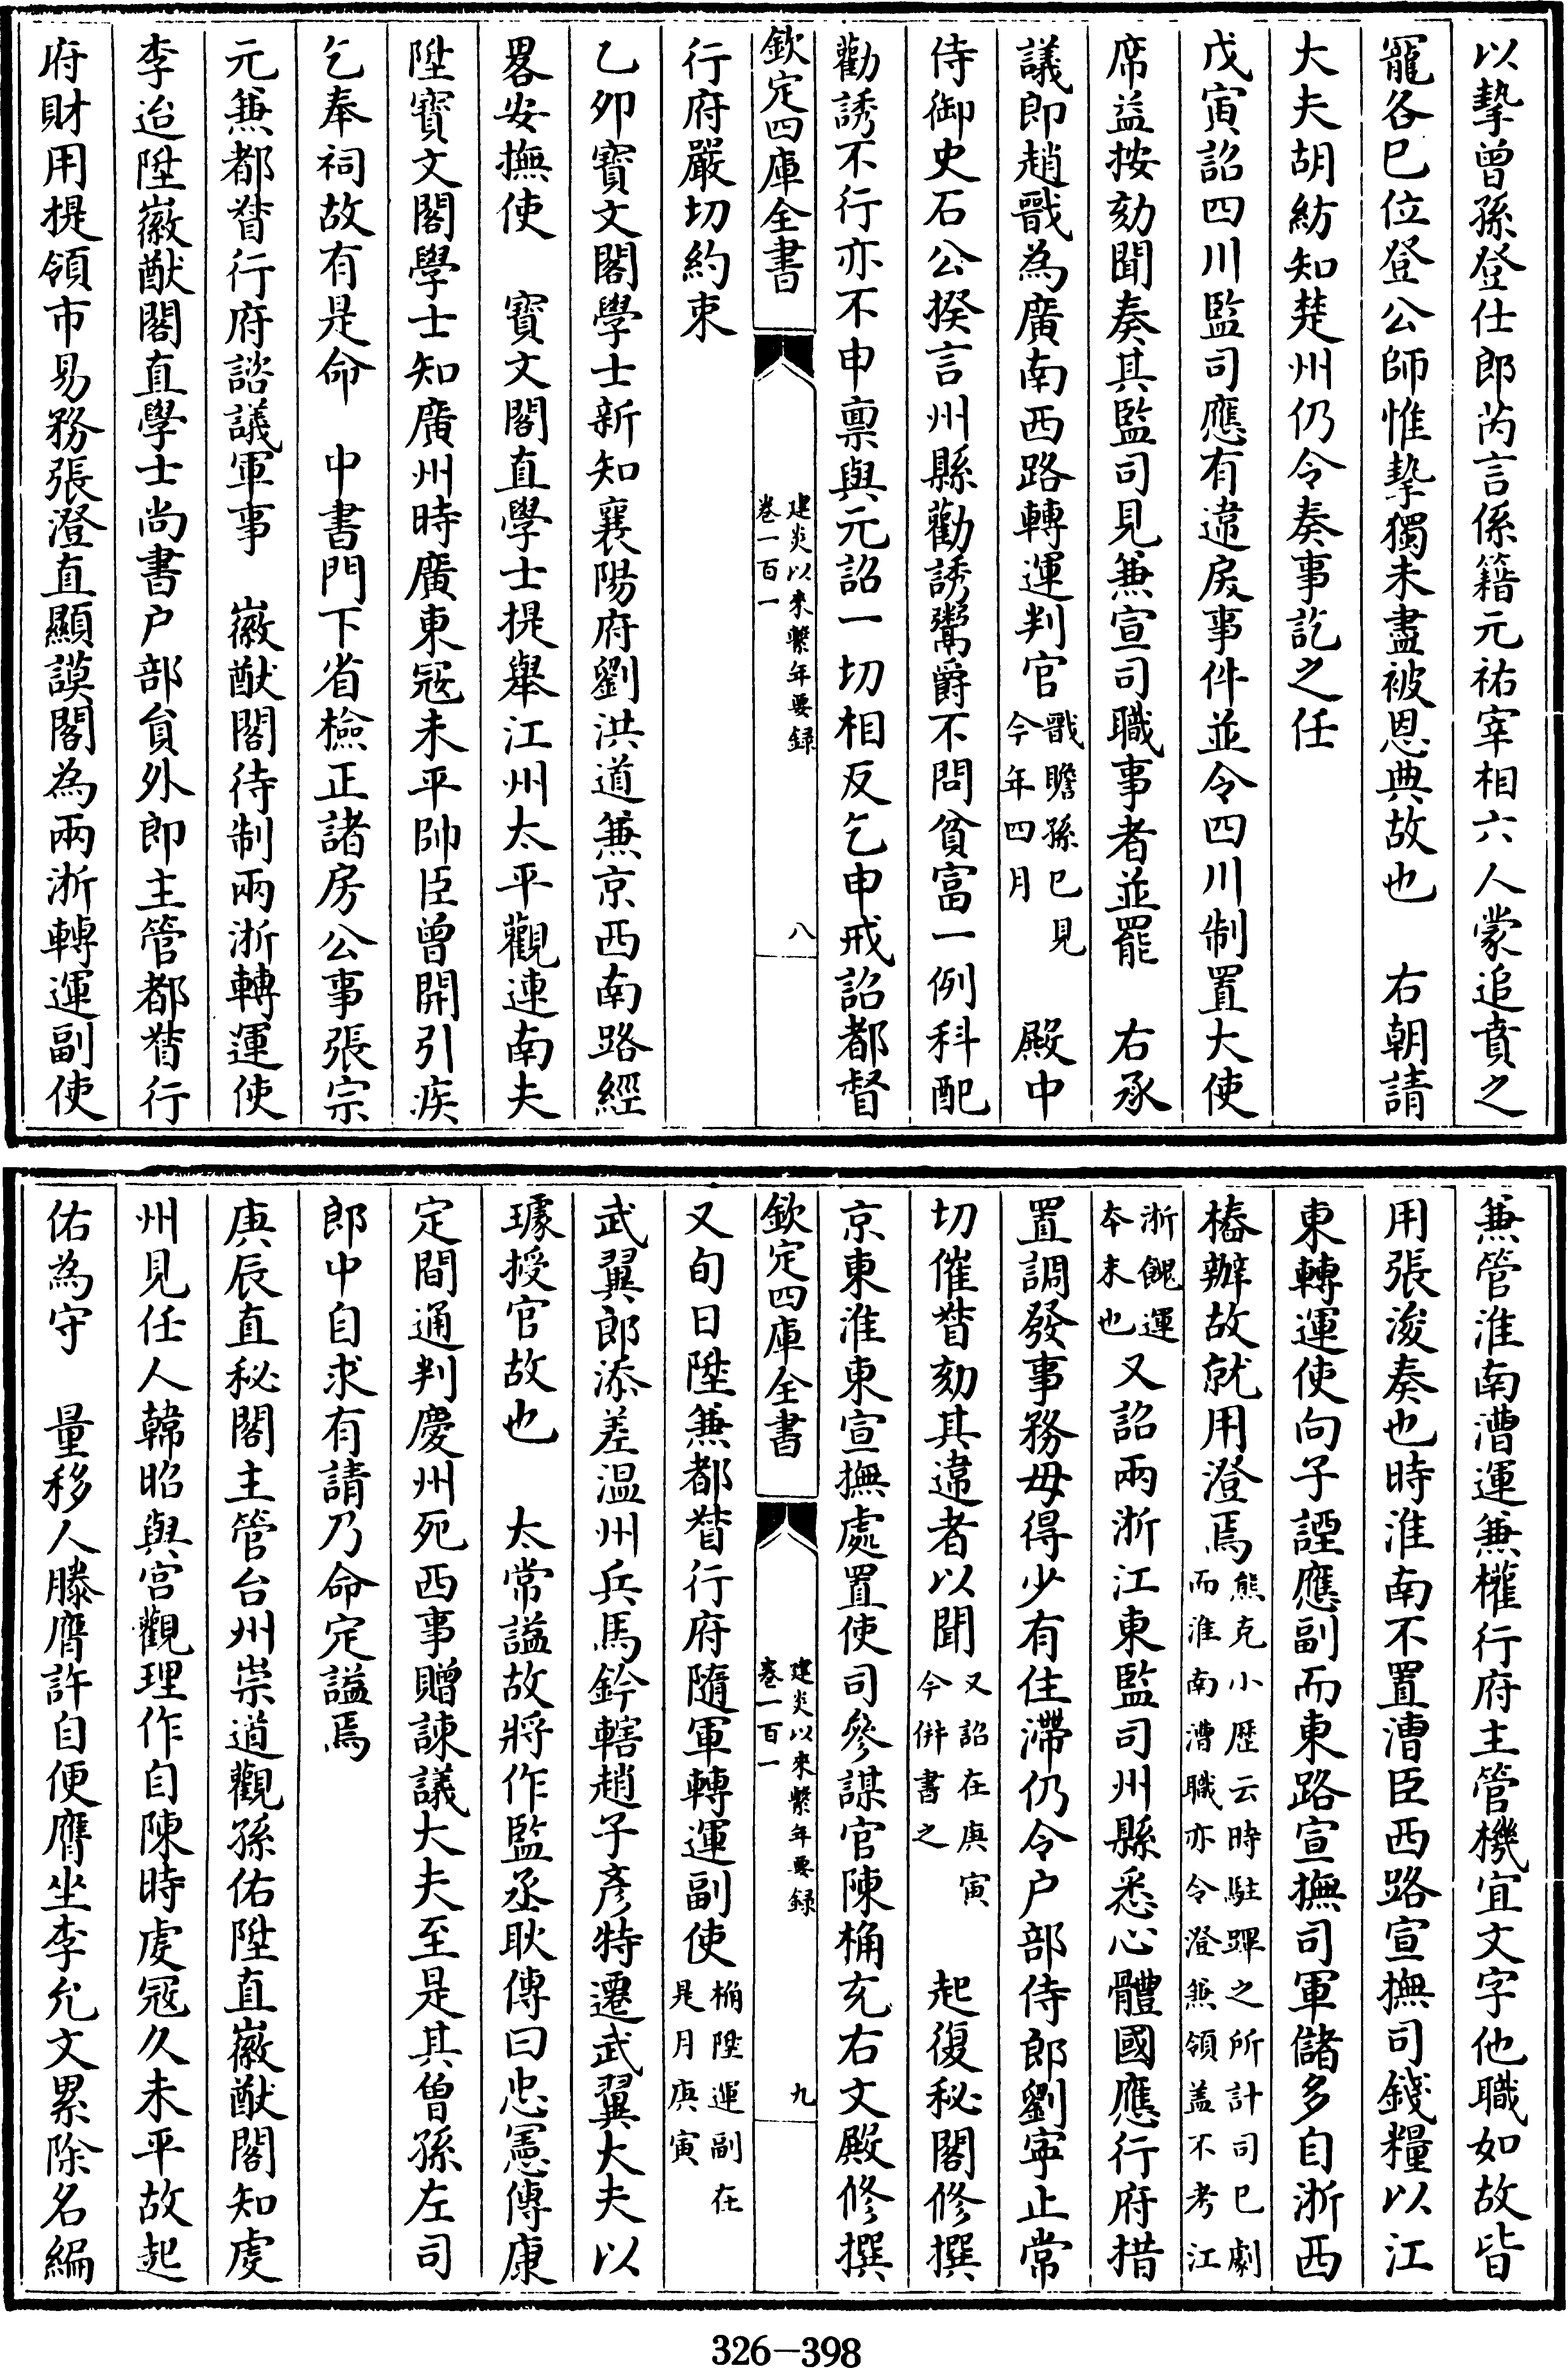 以摯曾孫登仕郎芮言係籍元祐宰相六人蒙追賁之
寵各已位登公師惟摯獨未盡被恩典故也　右朝請
大夫胡紡知楚州仍令奏事訖之任
戊寅詔四川監司應有違戾事件並令四川制置大使
席益按劾聞奏其監司見兼宣司職事者並罷　右承
議郎趙戬為廣南西路轉運判官戬瞻孫已見今年四月　殿中
侍御史石公揆言州縣勸誘鬻爵不問貧富一例科配
勸誘不行亦不申禀與元詔一切相反乞申戒詔都督
欽定四庫全書　建炎以來繫年要録　卷一百一　八
行府嚴切約束
乙卯寶文閣學士新知襄陽府劉洪道兼京西南路經
畧安撫使　寶文閣直學士提舉江州太平觀連南夫
陞寶文閣學士知廣州時廣東冦未平帥臣曾開引疾
乞奉祠故有是命　中書門下省檢正諸房公事張宗
元兼都督行府諮議軍事　徽猷閣待制兩浙轉運使
李迨陞徽猷閣直學士尚書户部員外郎主管都督行
府財用提領市易務張澄直顯謨閣為兩浙轉運副使
兼管淮南漕運兼權行府主管機宜文字他職如故皆
用張浚奏也時淮南不置漕臣西路宣撫司錢糧以江
東轉運使向子諲應副而東路宣撫司軍儲多自浙西
樁辦故就用澄焉熊克小歴云時駐蹕之所計司已劇而淮南漕職亦令澄兼領盖不考江
浙餽運本末也又詔兩浙江東監司州縣悉心體國應行府措
置調發事務毋得少有住滯仍令户部侍郎劉寧止常
切催督劾其違者以聞又詔在庚寅今併書之　起復秘閣修撰
京東淮東宣撫處置使司參謀官陳桷充右文殿修撰
欽定四庫全書　建炎以來繫年要録　卷一百一　九
又旬日陞兼都督行府隨軍轉運副使桷陞運副在是月庚寅
武翼郎添差温州兵馬鈐轄趙子彥特遷武翼大夫以
璩授官故也　太常謚故將作監丞耿傳曰忠憲傳康
定間通判慶州死西事贈諫議大夫至是其曾孫左司
郎中自求有請乃命定謚焉
庚辰直秘閣主管台州崇道觀孫佑陞直徽猷閣知虔
州見任人韓昭與宫觀理作自陳時虔冦久未平故起
佑為守　量移人滕膺許自便膺坐李允文累除名編
326—398